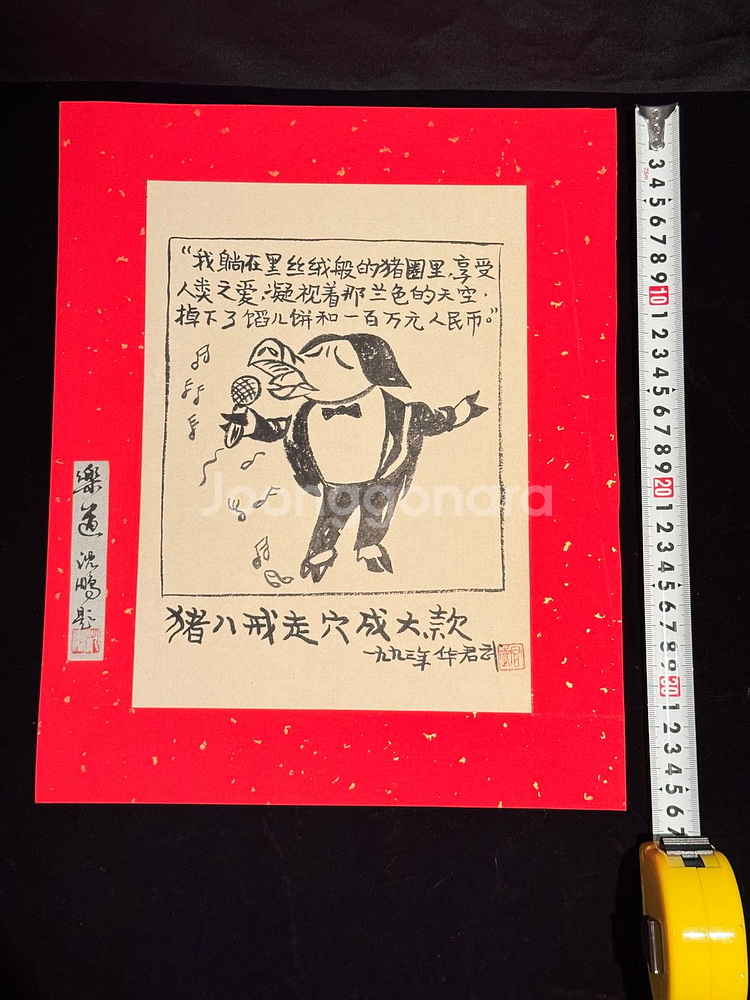 “我躺在黑丝绒般的猪圈里,享受
人类之爱,凝视着那兰色的天空,
掉下了馅儿饼和一百万元人民币。”
猪八戒走穴成大款
一九九三年 华君武
樂道
沈鹏题
Joonggonara
3 4 5 6 7 8 9 10 1 2 3 4 5 6 7 8 9 20 1 2 3 4 5 6 7 8 9 30 1 2 3 4 5 6 7